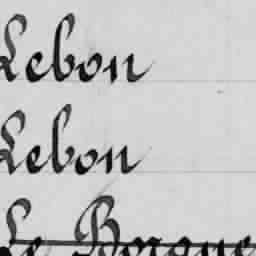 Lebon
Lebon
Le Borgne